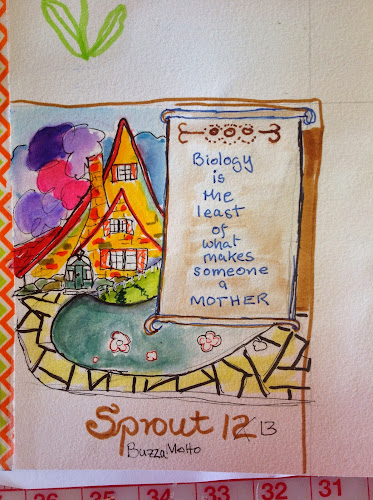 Biology
is
the
least
of
what
makes
someone
a
MOTHER
Sprout 12 13
Buzza Motto
35 34 33 32 31